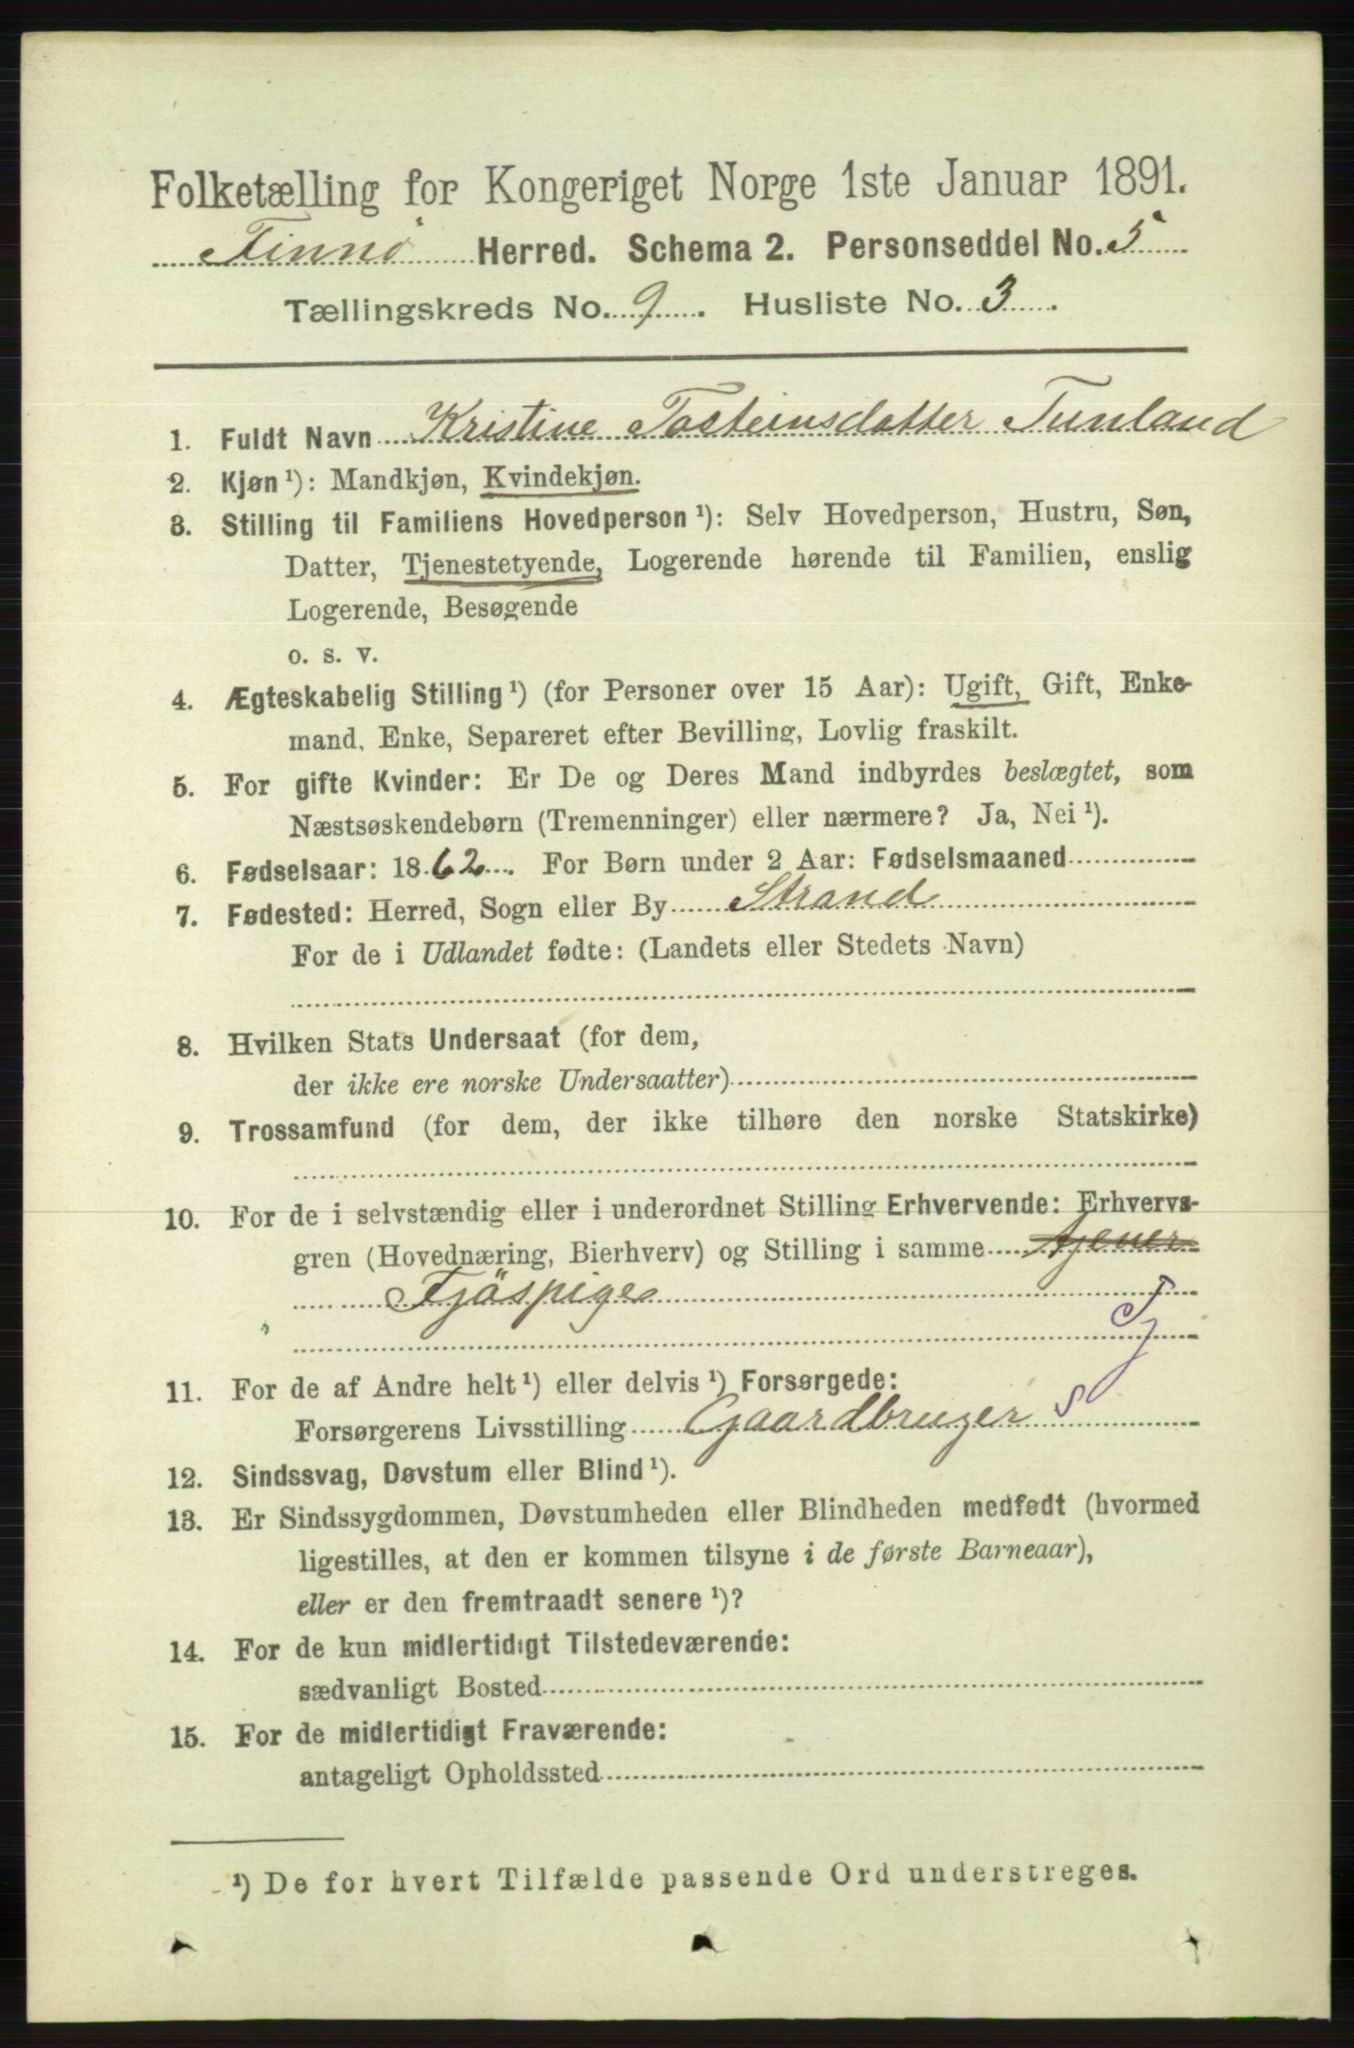 Folketælling for Kongeriget Norge 1ste Januar 1891.
Finnö Herred. Schema 2. Personseddel No. 5
Tællingskreds No. 9. Husliste No. 3.
1. Fuldt Navn Kristine Tosteinsdatter Tunland
2. Kjøn ¹): Mandkjøn, Kvindekjøn.
3. Stilling til Familiens Hovedperson ¹): Selv Hovedperson, Hustru, Søn,
Datter, Tjenestetyende, Logerende hørende til Familien, enslig
Logerende, Besøgende
o. s. v.
4. Ægteskabelig Stilling ¹) (for Personer over 15 Aar): Ugift, Gift, Enke-
mand, Enke, Separeret efter Bevilling, Lovlig fraskilt.
5. For gifte Kvinder: Er De og Deres Mand indbyrdes beslægtet, som
Næstsøskendebørn (Tremenninger) eller nærmere? Ja, Nei ¹).
6. Fødselsaar: 1862. For Børn under 2 Aar: Fødselsmaaned
7. Fødested: Herred, Sogn eller By Strand
For de i Udlandet fødte: (Landets eller Stedets Navn)
8. Hvilken Stats Undersaat (for dem,
der ikke ere norske Undersaatter)
9. Trossamfund (for dem, der ikke tilhøre den norske Statskirke)
10. For de i selvstændig eller i underordnet Stilling Erhvervende: Erhvervs-
gren (Hovednæring, Bierhverv) og Stilling i samme
Fjöspige
Tj
11. For de af Andre helt ¹) eller delvis ¹) Forsørgede:
Forsørgerens Livsstilling Gaardbruger s
12. Sindssvag, Døvstum eller Blind ¹).
13. Er Sindssygdommen, Døvstumheden eller Blindheden medfødt (hvormed
ligestilles, at den er kommen tilsyne i de første Barneaar),
eller er den fremtraadt senere ¹)?
14. For de kun midlertidigt Tilstedeværende:
sædvanligt Bosted
15. For de midlertidigt Fraværende:
antageligt Opholdssted
¹) De for hvert Tilfælde passende Ord understreges.